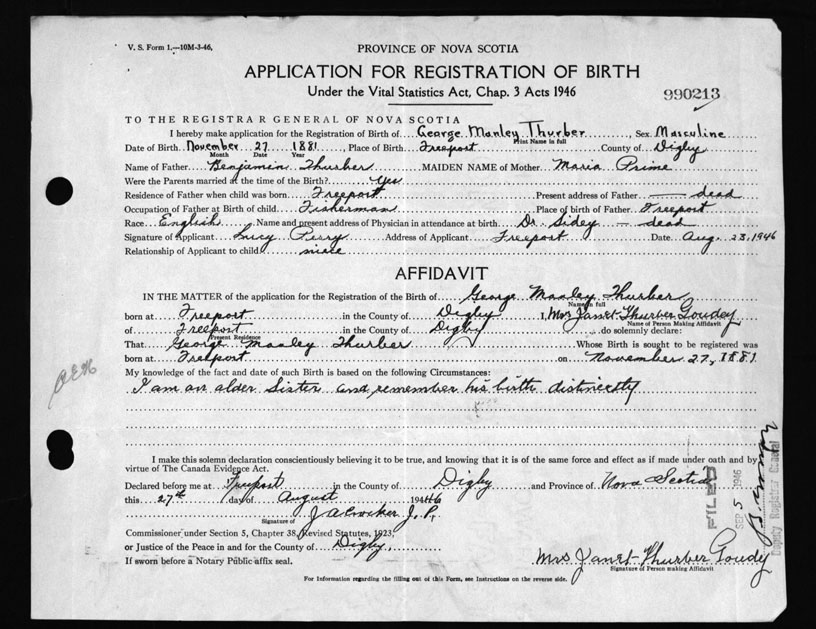 V. S. Form 1.—10M-3-46.
PROVINCE OF NOVA SCOTIA
APPLICATION FOR REGISTRATION OF BIRTH
Under the Vital Statistics Act, Chap. 3 Acts 1946
990213
TO THE REGISTRAR GENERAL OF NOVA SCOTIA
I hereby make application for the Registration of Birth of George Manley Thurber Sex Masculine
Print Name in full
Date of Birth November 27 1881 Place of Birth Freeport County of Digby
Month Date Year
Name of Father Benjamin Thurber MAIDEN NAME of Mother Maria Prime
Were the Parents married at the time of the Birth? Yes
Residence of Father when child was born Freeport Present address of Father — dead
Occupation of Father at Birth of child Fisherman Place of birth of Father Freeport
Race English Name and present address of Physician in attendance at birth Dr. Sidey — dead
Signature of Applicant Lucy Perry Address of Applicant Freeport Date Aug. 23, 1946
Relationship of Applicant to child niece
AFFIDAVIT
IN THE MATTER of the application for the Registration of the Birth of George Manley Thurber
Name in full
born at Freeport in the County of Digby I, Mrs Janet Thurber Goudey
Name of Person Making Affidavit
of Freeport in the County of Digby do solemnly declare:
Present Residence
That George Manley Thurber Whose Birth is sought to be registered was
born at Freeport on November 27, 1881
My knowledge of the fact and date of such Birth is based on the following Circumstances:
I am an alder Sister and remember his birth distinctly
I make this solemn declaration conscientiously believing it to be true, and knowing that it is of the same force and effect as if made under oath and by
virtue of The Canada Evidence Act.
Declared before me at Freeport in the County of Digby and Province of Nova Scotia
this 27th day of August 1946
Signature of J A Crocker J. P.
Commissioner under Section 5, Chapter 38, Revised Statutes, 1923,
or Justice of the Peace in and for the County of Digby
If sworn before a Notary Public affix seal.
Mrs Janet Thurber Goudy
Signature of Person making Affidavit
For Information regarding the filling out of this Form, see Instructions on the reverse side.
FILED
SEP 5 1946
Deputy Registrar General